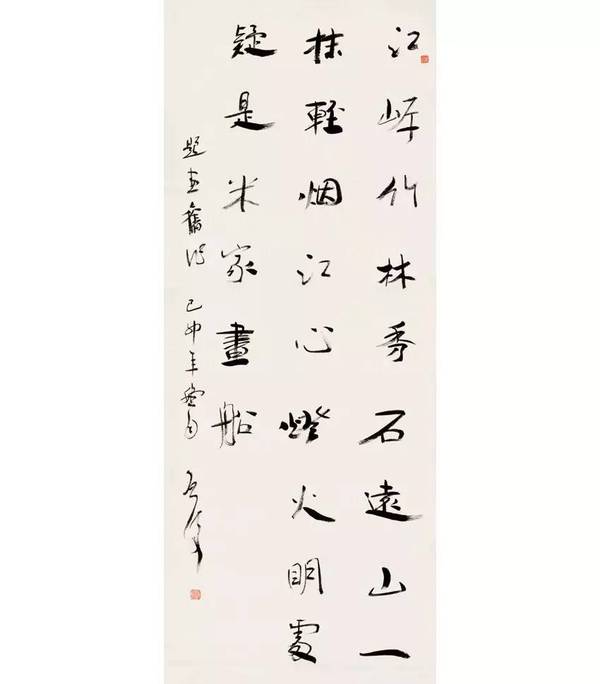 江岸竹林秀石遠山一
抹輕烟江心燈火明處
疑是米家畫船
題畫舊作 己卯年